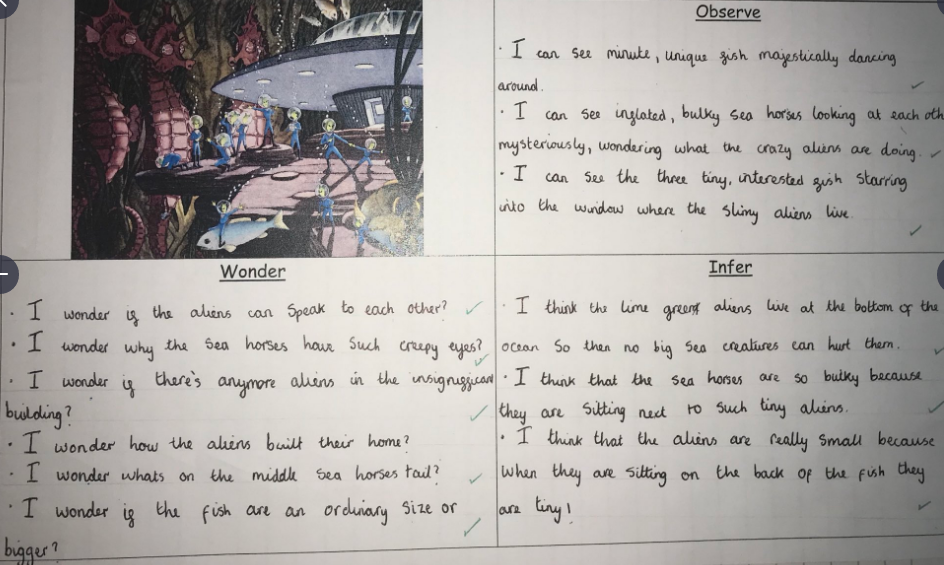 Observe
· I can see minute, unique fish majestically dancing
around.
· I can see inflated, bulky sea horses looking at each oth
mysteriously, wondering what the crazy aliens are doing.
· I can see the three tiny, interested fish starring
into the window where the slimy aliens live.
Wonder
· I wonder if the aliens can speak to each other?
· I wonder why the sea horses have such creepy eyes?
· I wonder if there's anymore aliens in the insignifficant
building?
· I wonder how the aliens built their home?
· I wonder whats on the middle sea horses tail?
· I wonder if the fish are an ordinary size or
bigger?
Infer
· I think the lime green aliens live at the bottom of the
ocean so then no big sea creatures can hurt them.
· I think that the sea horses are so bulky because
they are sitting next to such tiny aliens.
· I think that the aliens are really small because
when they are sitting on the back of the fish they
are tiny!